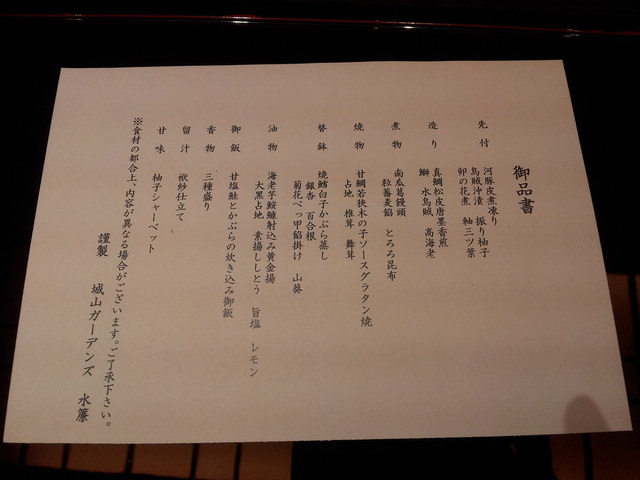 御品書
先付
河豚皮煮凍り
烏賊沖漬 振り柚子
卯の花煮 軸三ツ葉
造り
真鯛松皮唐墨香煎
鰤 水烏賊 高海老
煮物
南瓜葛饅頭
粒蕎麦餡 とろろ昆布
焼物
甘鯛若狭木の子ソースグラタン焼
占地 椎茸 舞茸
替鉢
焼鱈白子かぶら蒸し
銀杏 百合根
菊花べっ甲餡掛け 山葵
油物
海老芋鮟鱇射込み黄金揚
大黒占地 素揚ししとう 旨塩 レモン
御飯
甘塩鮭とかぶらの炊き込み御飯
香物
三種盛り
留汁
袱紗仕立て
甘味
柚子シャーベット
※食材の都合上、内容が異なる場合がございます。ご了承下さい。
謹製 城山ガーデンズ 水簾